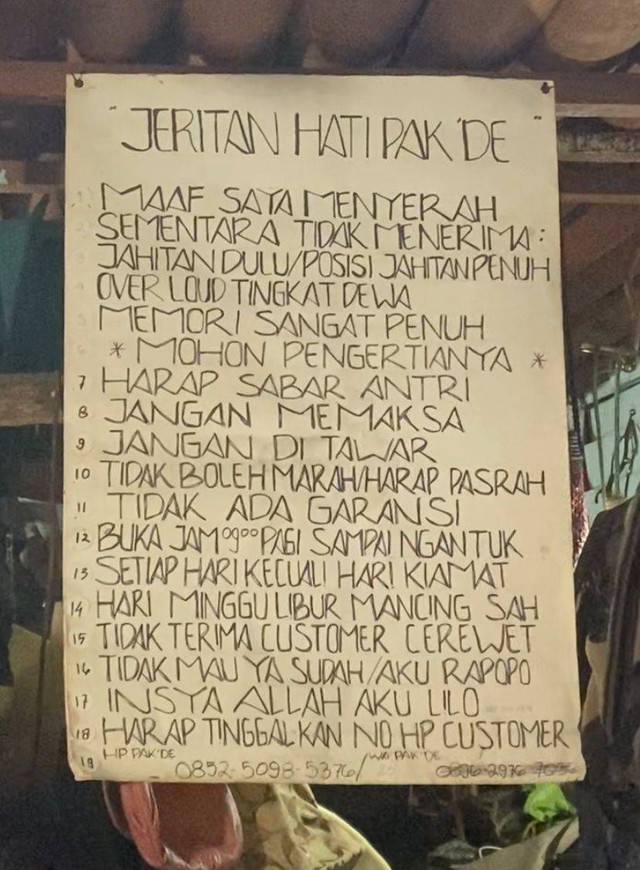 "JERITAN HATI PAK'DE"
MAAF SAYA MENYERAH
SEMENTARA TIDAK MENERIMA :
JAHITAN DULU/POSISI JAHITAN PENUH
OVER LOUD TINGKAT DEWA
MEMORI SANGAT PENUH
* MOHON PENGERTIANYA *
7 HARAP SABAR ANTRI
8 JANGAN MEMAKSA
9 JANGAN DI TAWAR
10 TIDAK BOLEH MARAH/HARAP PASRAH
11 TIDAK ADA GARANSI
12 BUKA JAM 09⁰⁰ PAGI SAMPAI NGANTUK
13 SETIAP HARI KECUALI HARI KIAMAT
14 HARI MINGGU LIBUR MANCING SAH
15 TIDAK TERIMA CUSTOMER CEREWET
16 TIDAK MAU YA SUDAH/AKU RAPOPO
17 INSYA ALLAH AKU LILO
18 HARAP TINGGALKAN NO HP CUSTOMER
19 HP PAK'DE 0852-5098-5376/ WA PAK'DE